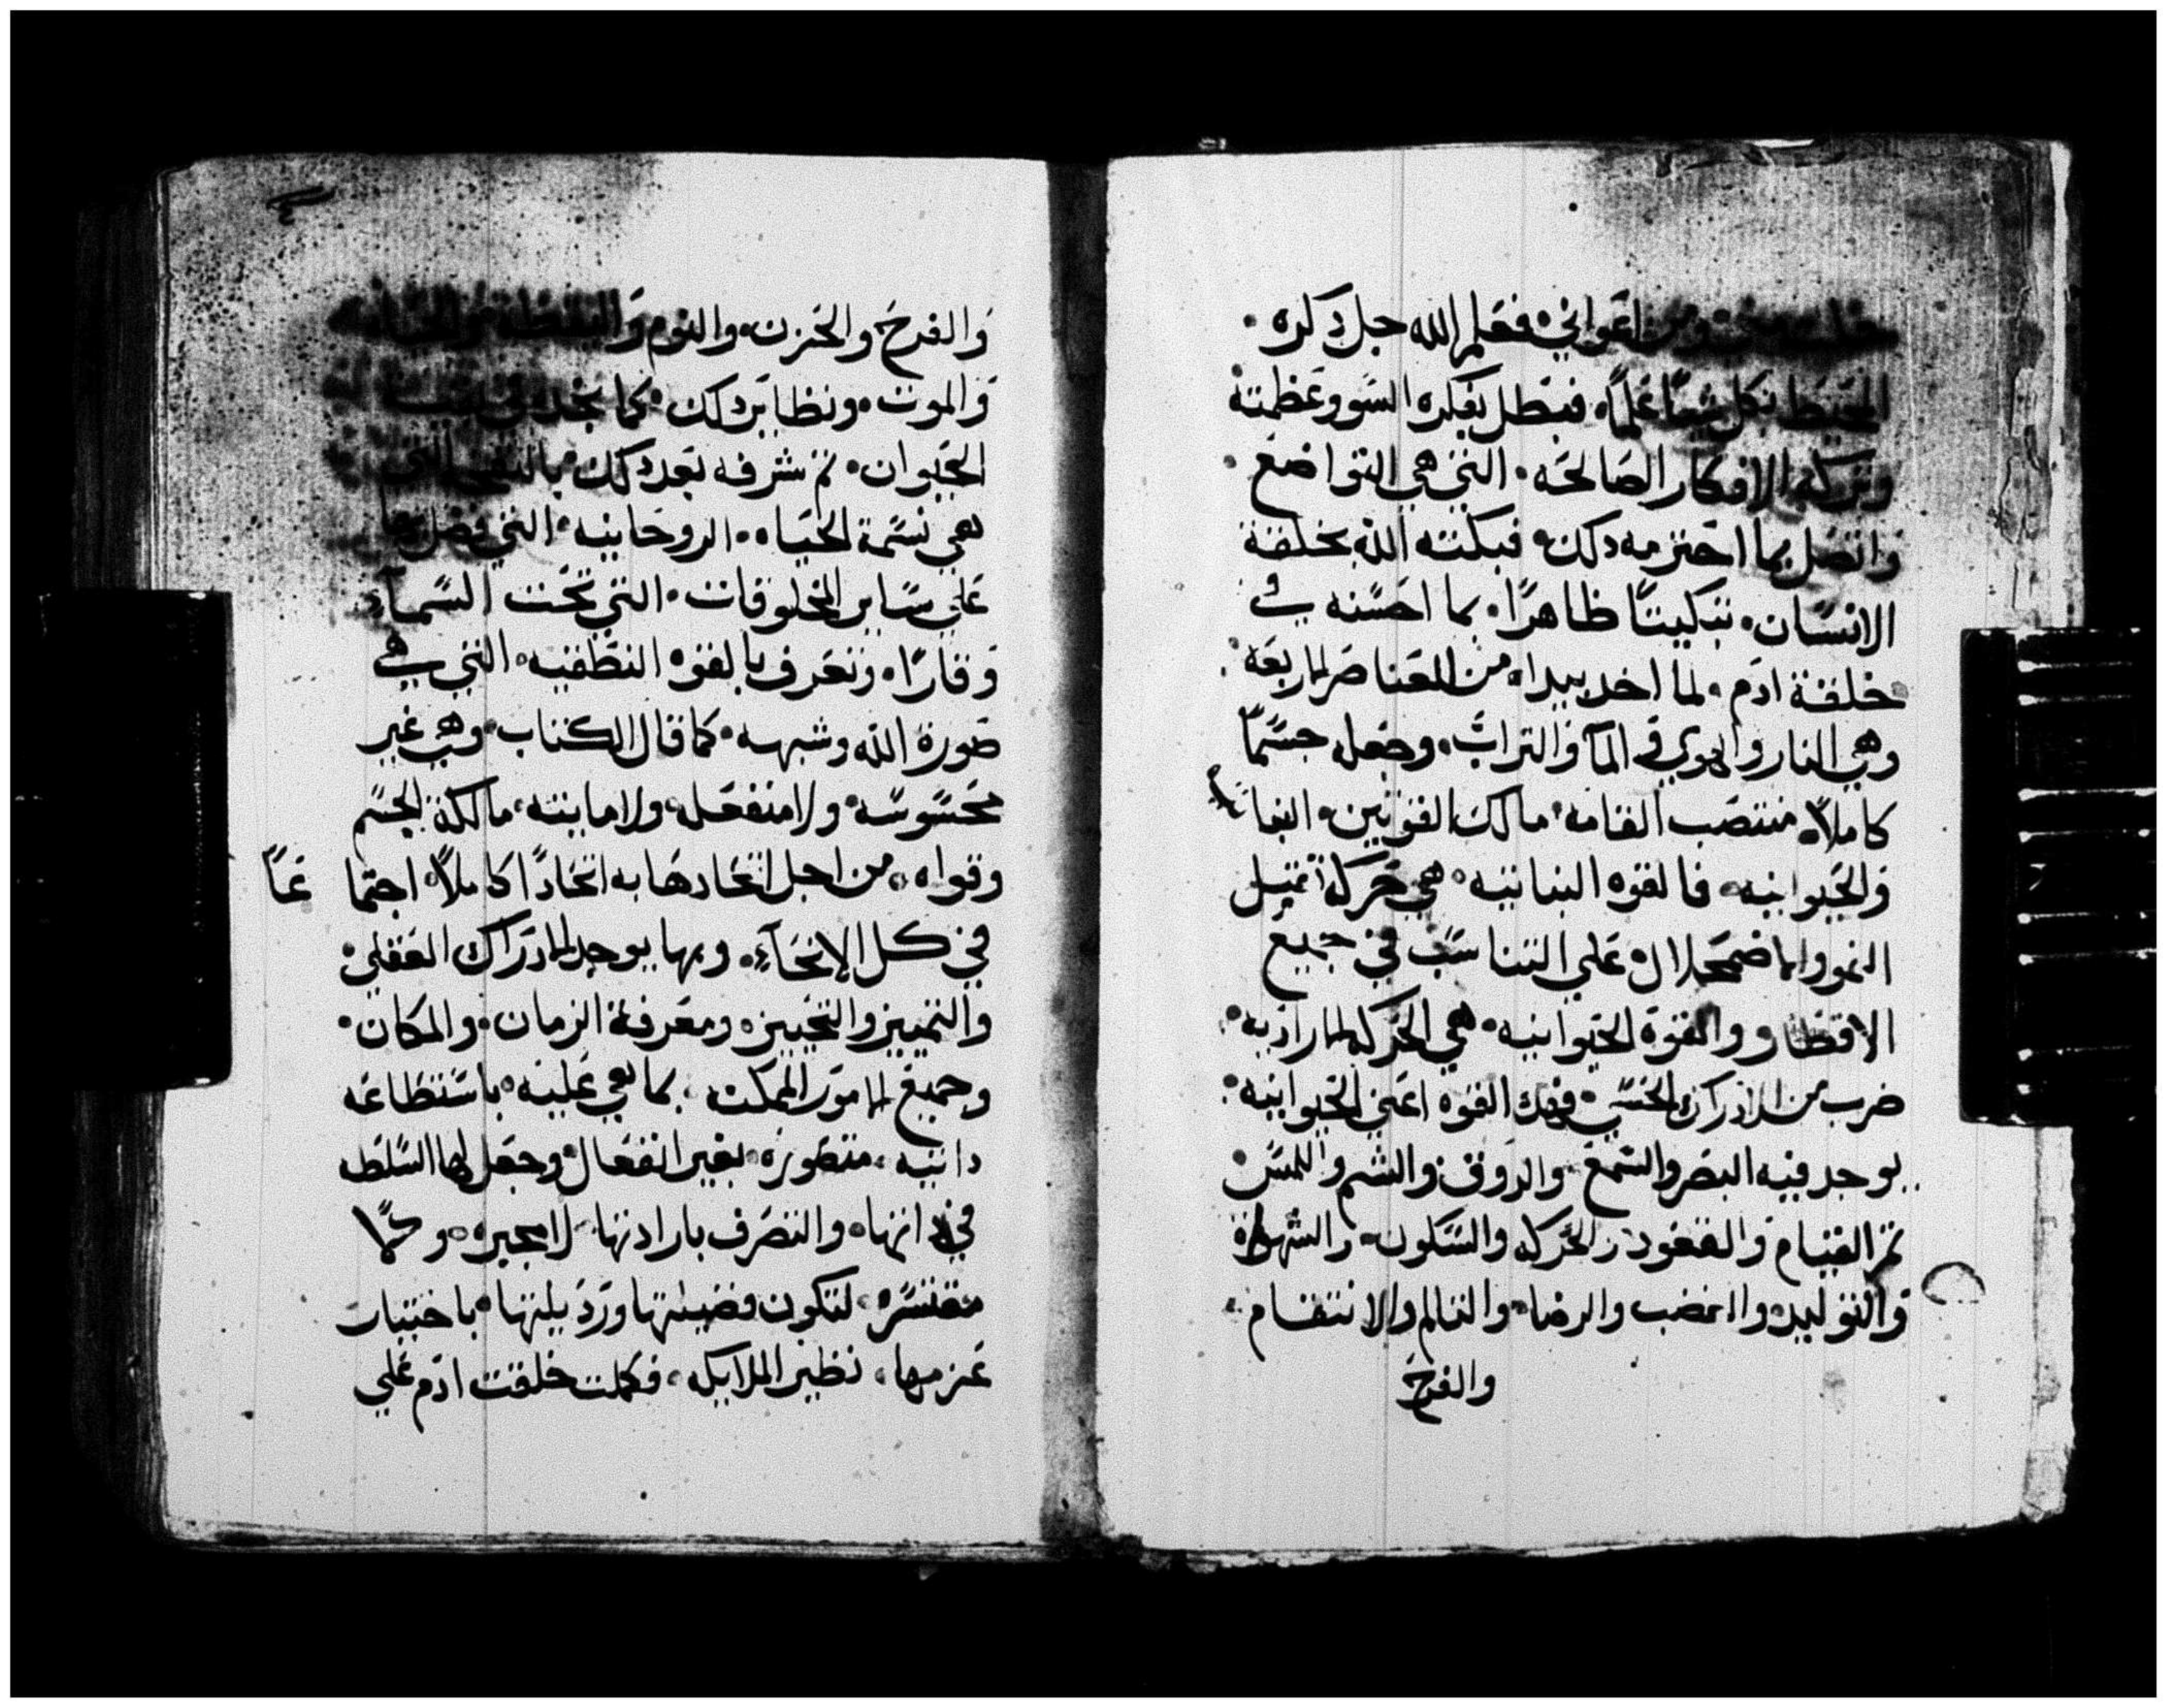 اعواني فعلم الله جل دكره
المحيط بكل شيا علماً فبطل بفكره السو وعظمته
وتركه الافكار الصالحه التي هي التواضع
واتصل بما احترمه دلك فبكته الله بخلقة
الانسان تبكيتاً ظاهراً بما احسنه في
خلقة ادم لما اخد بيده من العناصر الاربعه
وهي النار والهوي والمآ والتراب وجعله جسماً
كاملاً منتصب القامه مالك القوتين النباتيه
والحيوانيه فالقوه النباتيه هي حركة تمتيل
النمو والاضمحلال علي التناسب في جميع
الاقطار والقوة الحيوانيه هي الحركه الاراديه
ضرب من الادراك الحسي فهده القوه اعني الحيوانيه
يوجد فيه البصر والسمع والدوق والشم واللمس
تم القيام والقعود والحركه والسكون والشهوة
والتوليد والغضب والرضا والتالم والانتقام
والفرح
والفرح والحزن والنوم واليقظه تم الحياه
والموت ونظاير دلك كما نجده في
الحيوان تم شرفه بعد دلك بالنفس التي
هي نسمة الحياه الروحانيه التي فضل بها
علي ساير المخلوقات التي تحت السمآء
وقاراً وتعرف بالقوه النطقيه التي هي
صورة الله وشبهه كما قال الكتاب وهي غير
محسوسه ولا منفعله ولا مايته مالكة الجسم
وقواه من اجل اتحادها به اتحاداً كاملاً اجتماعاً
في كل الانحآء وبها يوجد الادراك العقلي
والتمييز والتخيير ومعرفة الزمان والمكان
وجميع الامور الممكنه بما هي عليه باستطاعه
داتيه متصوره بغير انفعال وجعل لها السلطه
في داتها والتصرف بارادتها لا مجبره ولا
مقتسره لتكون فضيلتها وردٓيلتها باختيارٓ
عزمها نظير الملايكه فكملت خلقت ادم علي